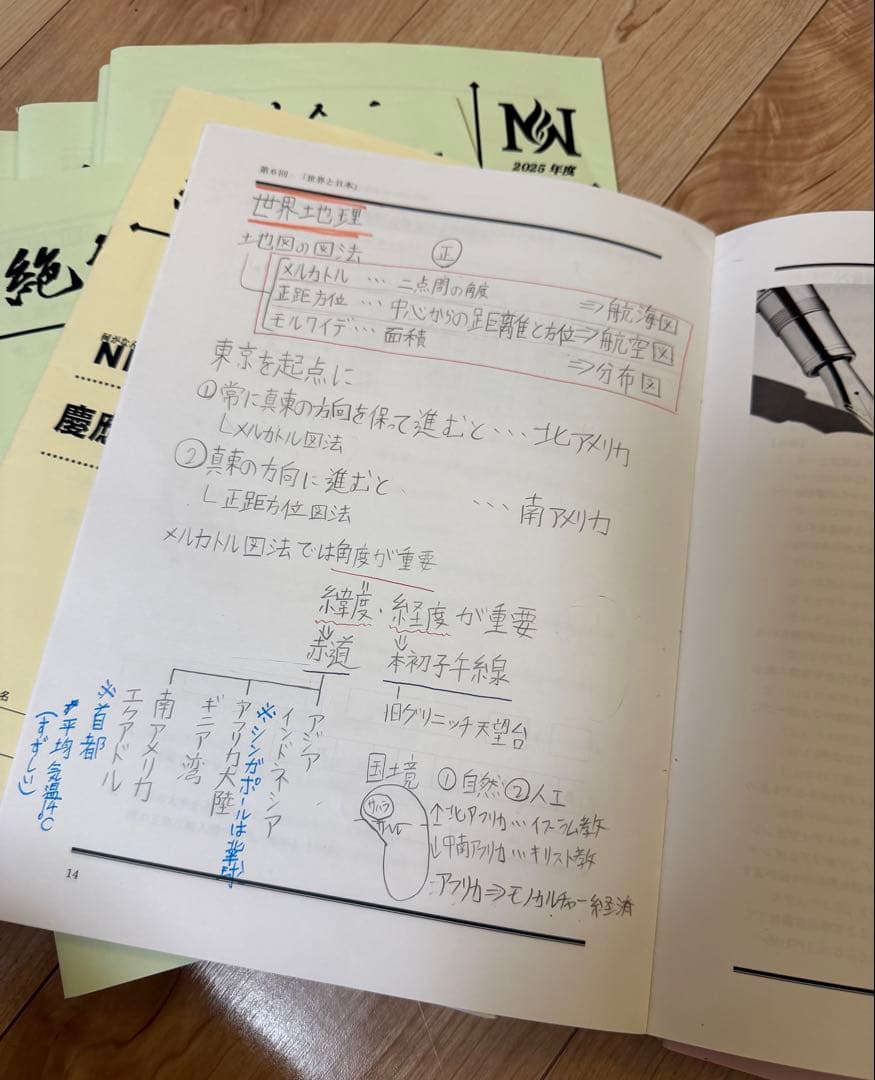 2025年度
絶
何がなん
慶應
名
第6回 「世界と日本」
世界地理
地図の図法
正
メルカトル … 二点間の角度 ⇒航海図
正距方位 … 中心からの距離と方位⇒航空図
モルワイデ… 面積 ⇒分布図
東京を起点に
①常に真東の方向を保って進むと… 北アメリカ
メルカトル図法
②真東の方向に進むと … 南アメリカ
正距方位図法
メルカトル図法では角度が重要
緯度・経度が重要
赤道
本初子午線
旧グリニッチ天望台
アジア
インドネシア
※シンガポールは
アフリカ大陸
ギニア湾
南アメリカ
エクアドル
※首都
平均気温14℃
(すずしい)
国境 ①自然②人工
サハラ
サヘル
↑北アフリカ…イスラム教
↓中南アフリカ…キリスト教
アフリカ⇒モノカルチャー経済
14